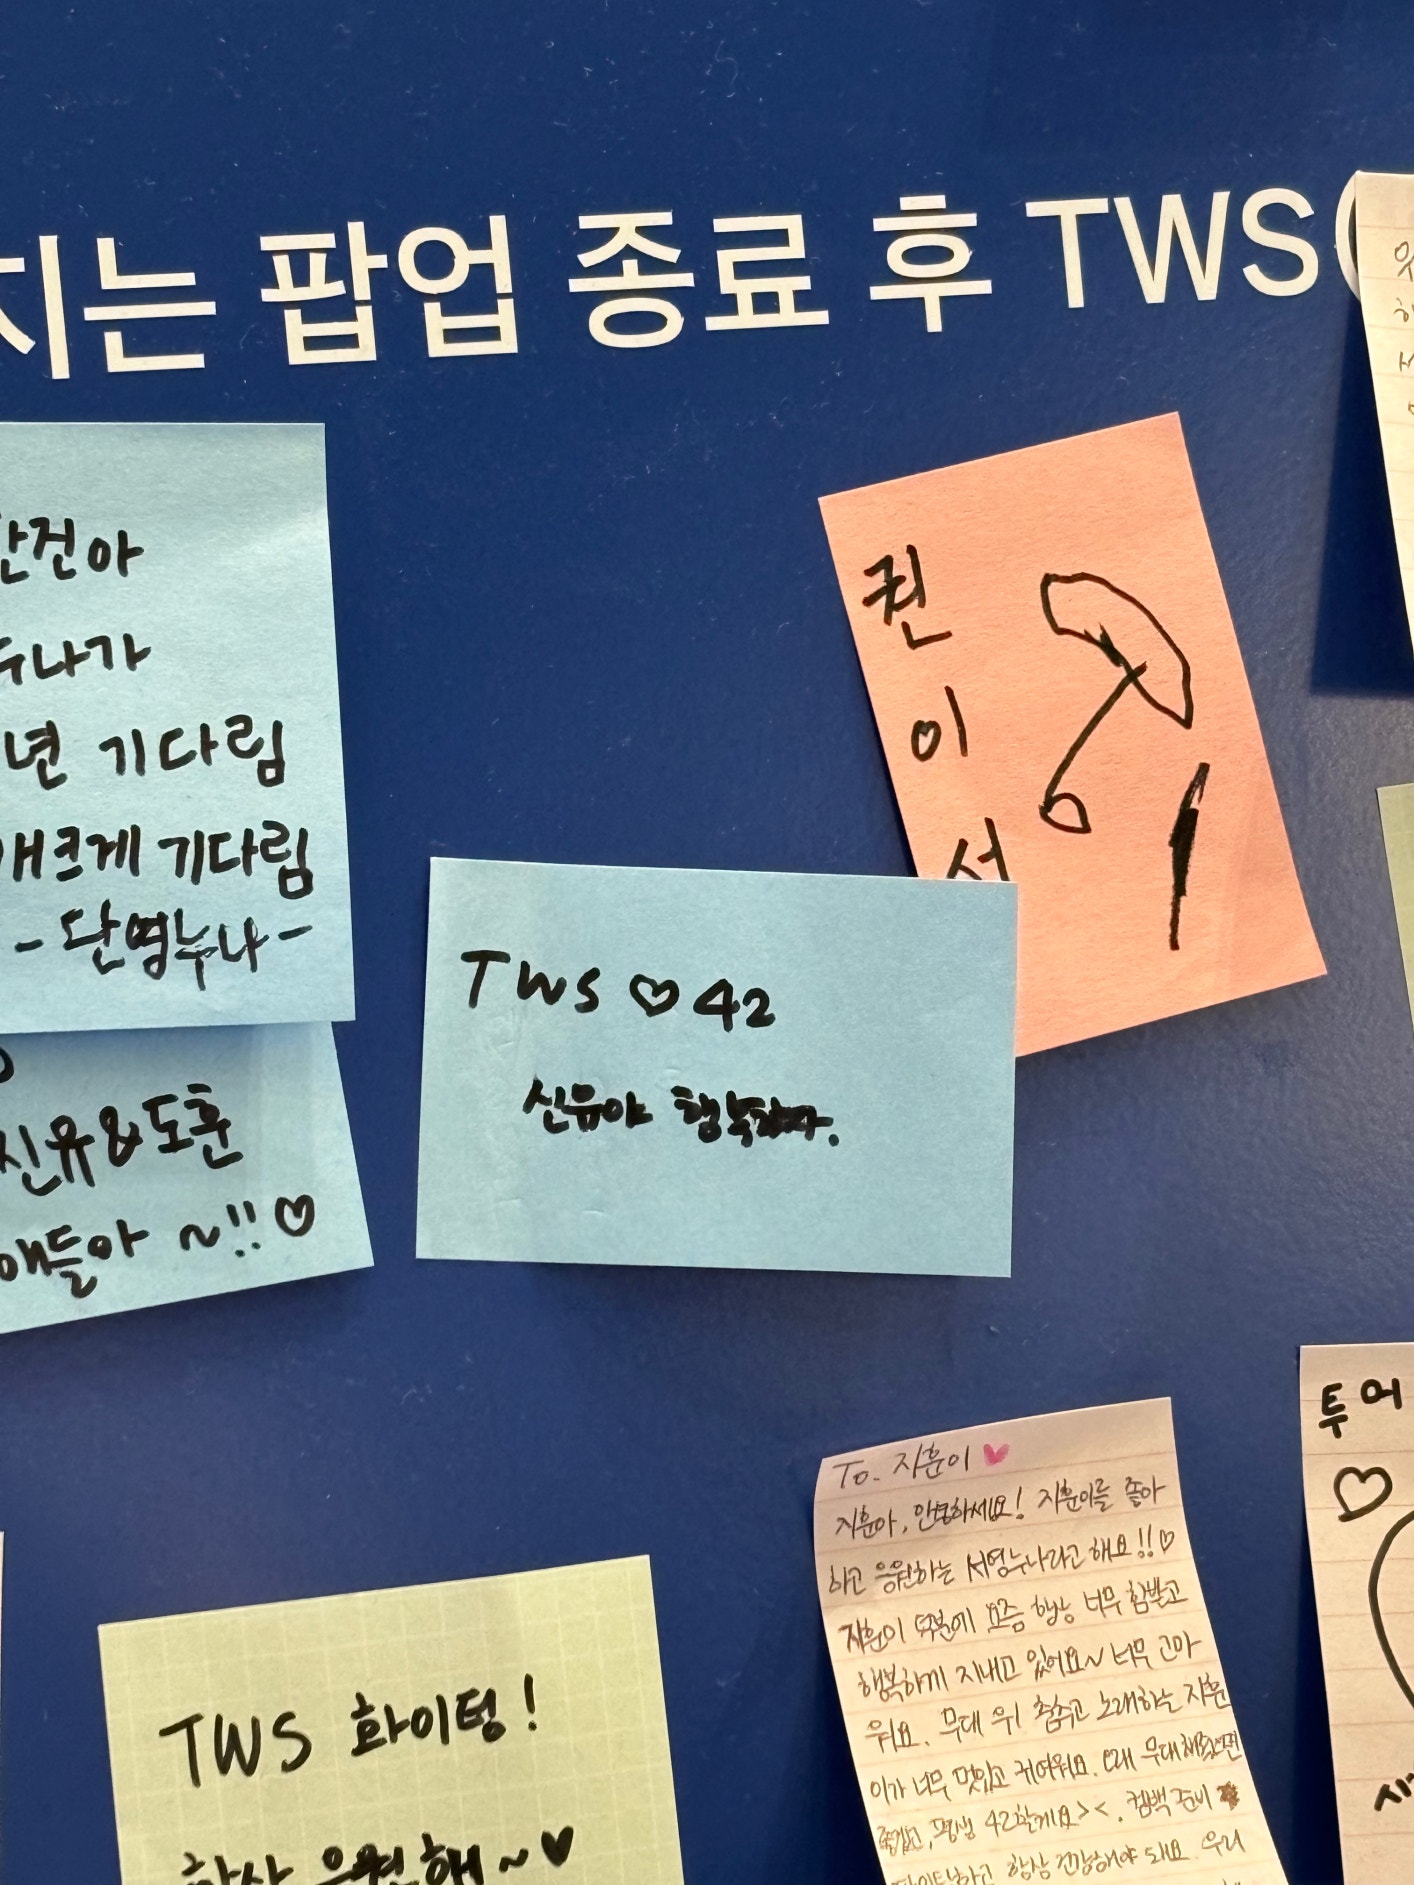 치는 팝업 종료 후 TWS
한진아
누나가
년 기다림
개크게 기다림
- 단영누나 -
신유&도훈
애들아 ~!! ♡
퀸
이
서
TWS ♡ 42
신유야 행복하자.
투어
♡
To. 지훈이 ♥
지훈아, 안녕하세요! 지훈이를 좋아
하고 응원하는 서영누나라고 해요!!♡
지훈이 덕분에 요즘 항상 너무 힘받고
행복하게 지내고 있어요~ 너무 고마
워요. 무대 위 춤추고 노래하는 지훈
이가 너무 멋있고 귀여워요. 오래 무대해줬으면
좋겠고, 평생 42할게요><. 컴백 준비
화이팅하고 항상 건강해야 돼요. 우리
TWS 화이팅!
항상 응원해~♥